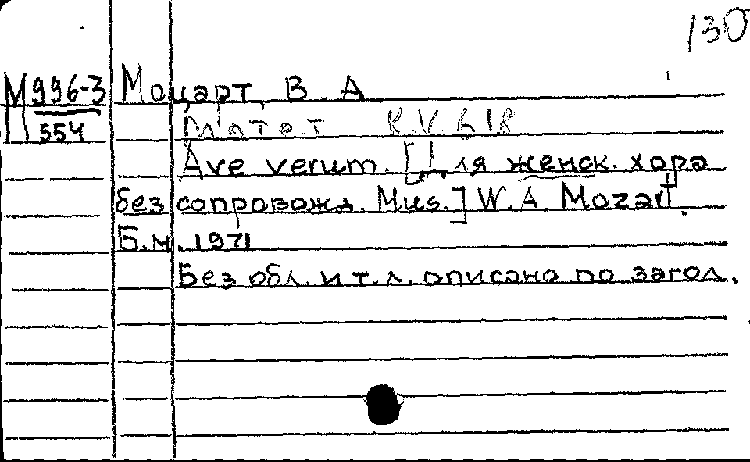 130
М996-3 Моцарт, В. А.
554 Мотет K.V. 618
Ave verum. [Для женск. хора
без сопровожд. Mus.] W. A. Mozart.
Б.м., 1971
Без обл. и т.л. описано по загол.